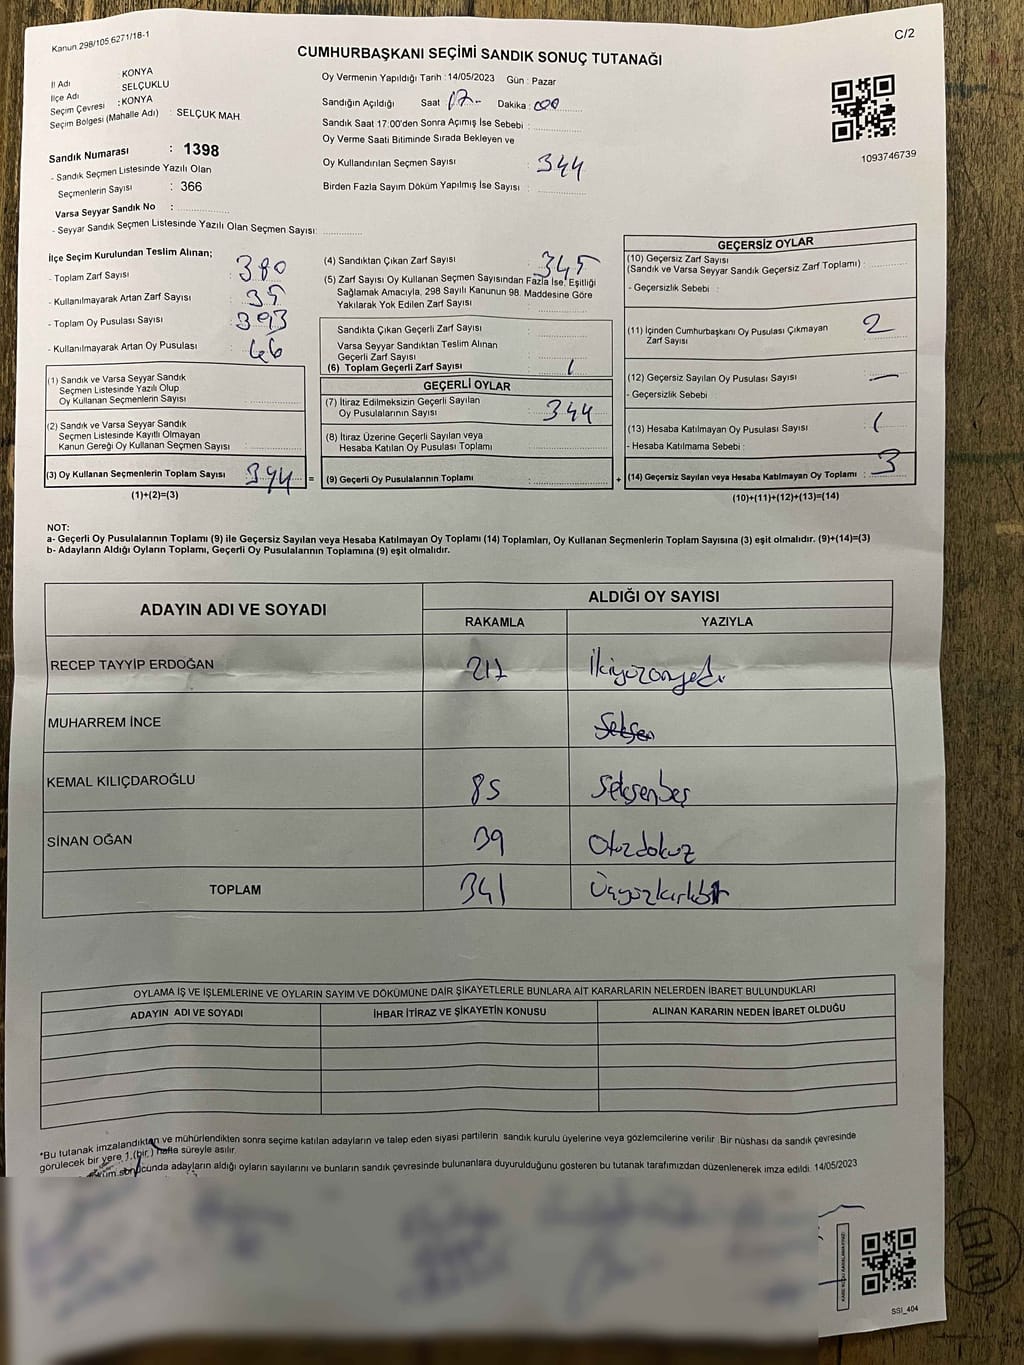 Kanun 298/105 6271/18-1
C/2
CUMHURBAŞKANI SEÇİMİ SANDIK SONUÇ TUTANAĞI
İl Adı KONYA
İlçe Adı SELÇUKLU
Seçim Çevresi : KONYA
Seçim Bölgesi (Mahalle Adı) : SELÇUK MAH.
Oy Vermenin Yapıldığı Tarih : 14/05/2023 Gün : Pazar
Sandığın Açıldığı Saat 17- Dakika : 000
Sandık Saat 17:00'den Sonra Açmış İse Sebebi :
Oy Verme Saati Bitiminde Sırada Bekleyen ve
Oy Kullandırılan Seçmen Sayısı : 344
Birden Fazla Sayım Döküm Yapılmış İse Sayısı :
1093746739
Sandık Numarası : 1398
- Sandık Seçmen Listesinde Yazılı Olan
Seçmenlerin Sayısı : 366
Varsa Seyyar Sandık No :
- Seyyar Sandık Seçmen Listesinde Yazılı Olan Seçmen Sayısı:
İlçe Seçim Kurulundan Teslim Alınan;
- Toplam Zarf Sayısı : 380
- Kullanılmayarak Artan Zarf Sayısı : 35
- Toplam Oy Pusulası Sayısı : 393
- Kullanılmayarak Artan Oy Pusulası : 46
(1) Sandık ve Varsa Seyyar Sandık
Seçmen Listesinde Yazılı Olup
Oy Kullanan Seçmenlerin Sayısı :
(2) Sandık ve Varsa Seyyar Sandık
Seçmen Listesinde Kayıtlı Olmayan
Kanun Gereği Oy Kullanan Seçmen Sayısı :
(3) Oy Kullanan Seçmenlerin Toplam Sayısı : 344
(1)+(2)=(3)
(4) Sandıktan Çıkan Zarf Sayısı : 345
(5) Zarf Sayısı Oy Kullanan Seçmen Sayısından Fazla İse, Eşitliği
Sağlamak Amacıyla, 298 Sayılı Kanunun 98. Maddesine Göre
Yakılarak Yok Edilen Zarf Sayısı :
Sandıkta Çıkan Geçerli Zarf Sayısı :
Varsa Seyyar Sandıktan Teslim Alınan
Geçerli Zarf Sayısı :
(6) Toplam Geçerli Zarf Sayısı : 1
GEÇERLİ OYLAR
(7) İtiraz Edilmeksizin Geçerli Sayılan
Oy Pusulalarının Sayısı : 344
(8) İtiraz Üzerine Geçerli Sayılan veya
Hesaba Katılan Oy Pusulası Toplamı :
= (9) Geçerli Oy Pusulalarının Toplamı :
GEÇERSİZ OYLAR
(10) Geçersiz Zarf Sayısı
(Sandık ve Varsa Seyyar Sandık Geçersiz Zarf Toplamı) :
- Geçersizlik Sebebi :
(11) İçinden Cumhurbaşkanı Oy Pusulası Çıkmayan
Zarf Sayısı : 2
(12) Geçersiz Sayılan Oy Pusulası Sayısı : —
- Geçersizlik Sebebi :
(13) Hesaba Katılmayan Oy Pusulası Sayısı : 1
- Hesaba Katılmama Sebebi :
+ (14) Geçersiz Sayılan veya Hesaba Katılmayan Oy Toplamı : 3
(10)+(11)+(12)+(13)=(14)
NOT:
a- Geçerli Oy Pusulalarının Toplamı (9) ile Geçersiz Sayılan veya Hesaba Katılmayan Oy Toplamı (14) Toplamları, Oy Kullanan Seçmenlerin Toplam Sayısına (3) eşit olmalıdır. (9)+(14)=(3)
b- Adayların Aldığı Oyların Toplamı, Geçerli Oy Pusulalarının Toplamına (9) eşit olmalıdır.
ADAYIN ADI VE SOYADI ALDIĞI OY SAYISI
RAKAMLA YAZIYLA
RECEP TAYYİP ERDOĞAN 217 İkiyüzonyedi
MUHARREM İNCE Seksen
KEMAL KILIÇDAROĞLU 85 Seksenbeş
SİNAN OĞAN 39 Otuzdokuz
TOPLAM 341 Üçyüzkırkbir
OYLAMA İŞ VE İŞLEMLERİNE VE OYLARIN SAYIM VE DÖKÜMÜNE DAİR ŞİKAYETLERLE BUNLARA AİT KARARLARIN NELERDEN İBARET BULUNDUKLARI
ADAYIN ADI VE SOYADI İHBAR İTİRAZ VE ŞİKAYETİN KONUSU ALINAN KARARIN NEDEN İBARET OLDUĞU
*Bu tutanak imzalandıktan ve mühürlendikten sonra seçime katılan adayların ve talep eden siyasi partilerin sandık kurulu üyelerine veya gözlemcilerine verilir. Bir nüshası da sandık çevresinde
görülecek bir yere 1 (bir) hafta süreyle asılır.
sonucunda adayların aldığı oyların sayılarını ve bunların sandık çevresinde bulunanlara duyurulduğunu gösteren bu tutanak tarafımızdan düzenlenerek imza edildi. 14/05/2023
SSI_404
EVET